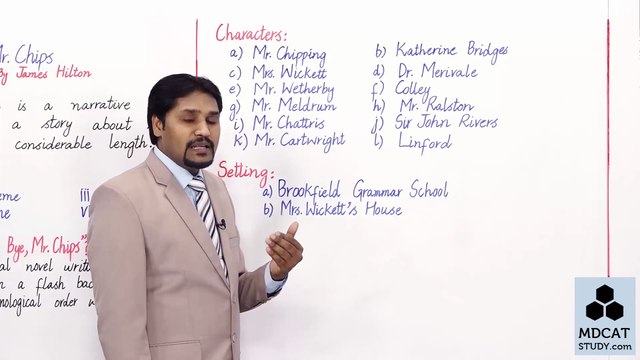 Mr. Chips
By James Hilton
is a narrative
a story about
considerable length.
eme iii
me v
Bye, Mr. Chips"?
al novel writ
n a flash bac
nological order w
Characters:
a) Mr. Chipping b) Katherine Bridges
c) Mrs. Wickett d) Dr. Merivale
e) Mr. Wetherby f) Colley
g) Mr. Meldrum h) Mr. Ralston
i) Mr. Chattris j) Sir John Rivers
k) Mr. Cartwright l) Linford
Setting:
a) Brookfield Grammar School
b) Mrs. Wickett's House
MDCAT
STUDY.com